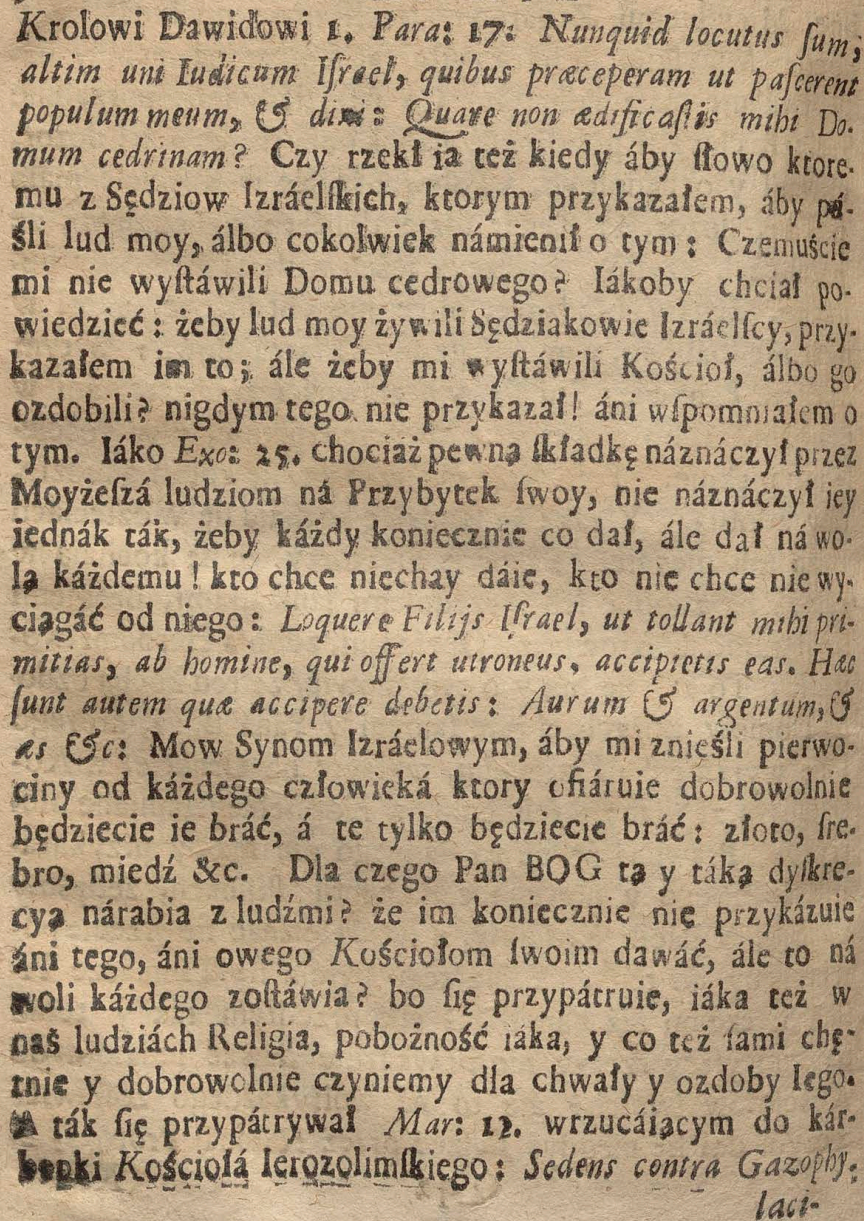 Krolowi Dawidowi 1. Para: 17: Nunquid locutus ſum,
altim uni Iudicum Iſrael, quibus præceperam ut paſcerent
populum meum, & dixi: Quare non ædificaſtis mihi Do-
mum cedrinam? Czy rzekł ia też kiedy áby ſłowo ktore-
mu z Sędziow Izráelſkich, ktorym przykazałem, áby pá-
śli lud moy, álbo cokolwiek námienił o tym: Czemuście
mi nie wyſtáwili Domu cedrowego? Iákoby chciał po-
wiedzieć: żeby lud moy żywili Sędziakowie Izráelſcy, przy-
kazałem im to; ále żeby mi wyſtáwili Kościoł, álbo go
ozdobili? nigdym tego nie przykazał! áni wſpomniałem o
tym. Iáko Exo: 25. chociaż pewną ſkładkę náznáczył przez
Moyżeſzá ludziom ná Przybytek ſwoy, nie náznáczył iey
iednák ták, żeby káżdy koniecznie co dał, ále dał ná wo-
lą káżdemu! kto chce niechay dáie, kto nie chce nie wy-
ciągáć od niego: Loquere Filijs Iſrael, ut tollant mihi pri-
mitias, ab homine, qui offert utroneus, accipietis eas. Hæc
ſunt autem quæ accipere debetis: Aurum & argentum, &
æs &c: Mow Synom Izráelowym, áby mi znieśli pierwo-
ciny od káżdego człowieká ktory ofiáruie dobrowolnie
będziecie ie bráć, á te tylko będziecie bráć: złoto, ſre-
bro, miedź &c. Dla czego Pan BOG tą y táką dyſkre-
cyą nárabia z ludźmi? że im koniecznie nie przykázuie
áni tego, áni owego Kościołom ſwoim dawáć, ále to ná
woli káżdego zoſtáwia? bo ſię przypátruie, iáka też w
nas ludziách Religia, pobożność iáka, y co też ſami chę-
tnie y dobrowolnie czyniemy dla chwały y ozdoby Iego.
A ták ſię przypátrywał Mar: 12. wrzucáiącym do kár-
bonki Kościołá Ierozolimſkiego: Sedens contra Gazophy-
laci-